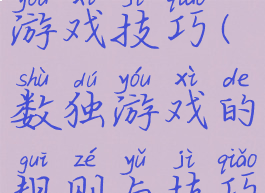 yóu xì jì qiǎo
游戏技巧(
shù dú yóu xì de
数独游戏的
guī zé yǔ jì qiǎo
规则与技巧